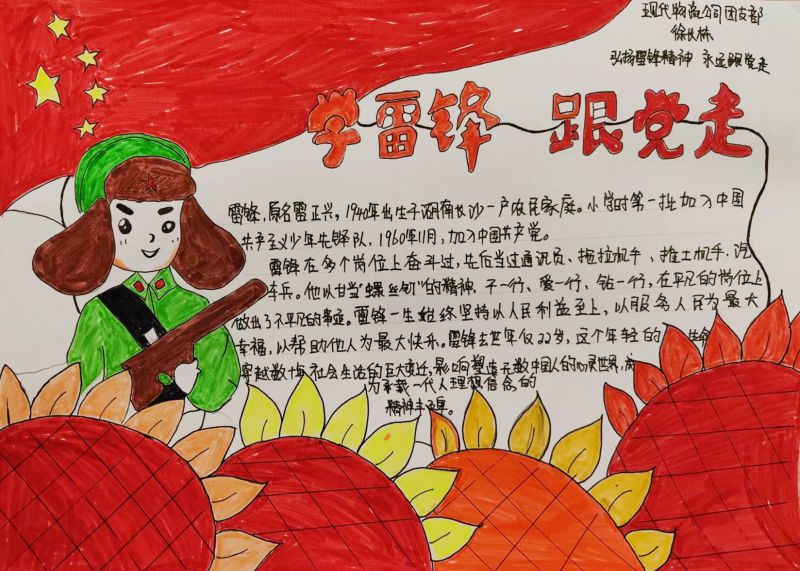 现代物流公司团支部
徐长林
弘扬雷锋精神 永远跟党走
学雷锋 跟党走
雷锋,原名雷正兴,1940年出生于湖南长沙一户农民家庭。小学时第一批加入中国
共产主义少年先锋队,1960年11月,加入中国共产党。
雷锋在多个岗位上奋斗过,先后当过通讯员、拖拉机手、推土机手、汽
车兵。他以甘当"螺丝钉"的精神,干一行、爱一行、钻一行,在平凡的岗位上
做出了不平凡的事迹。雷锋一生始终坚持以人民利益至上,以服务人民为最大
幸福,以帮助他人为最大快乐。雷锋去世年仅22岁,这个年轻的生命
穿越数十年社会生活的巨大变迁,影响塑造无数中国人的心灵世界,成
为承载一代人理想信念的
精神丰碑。